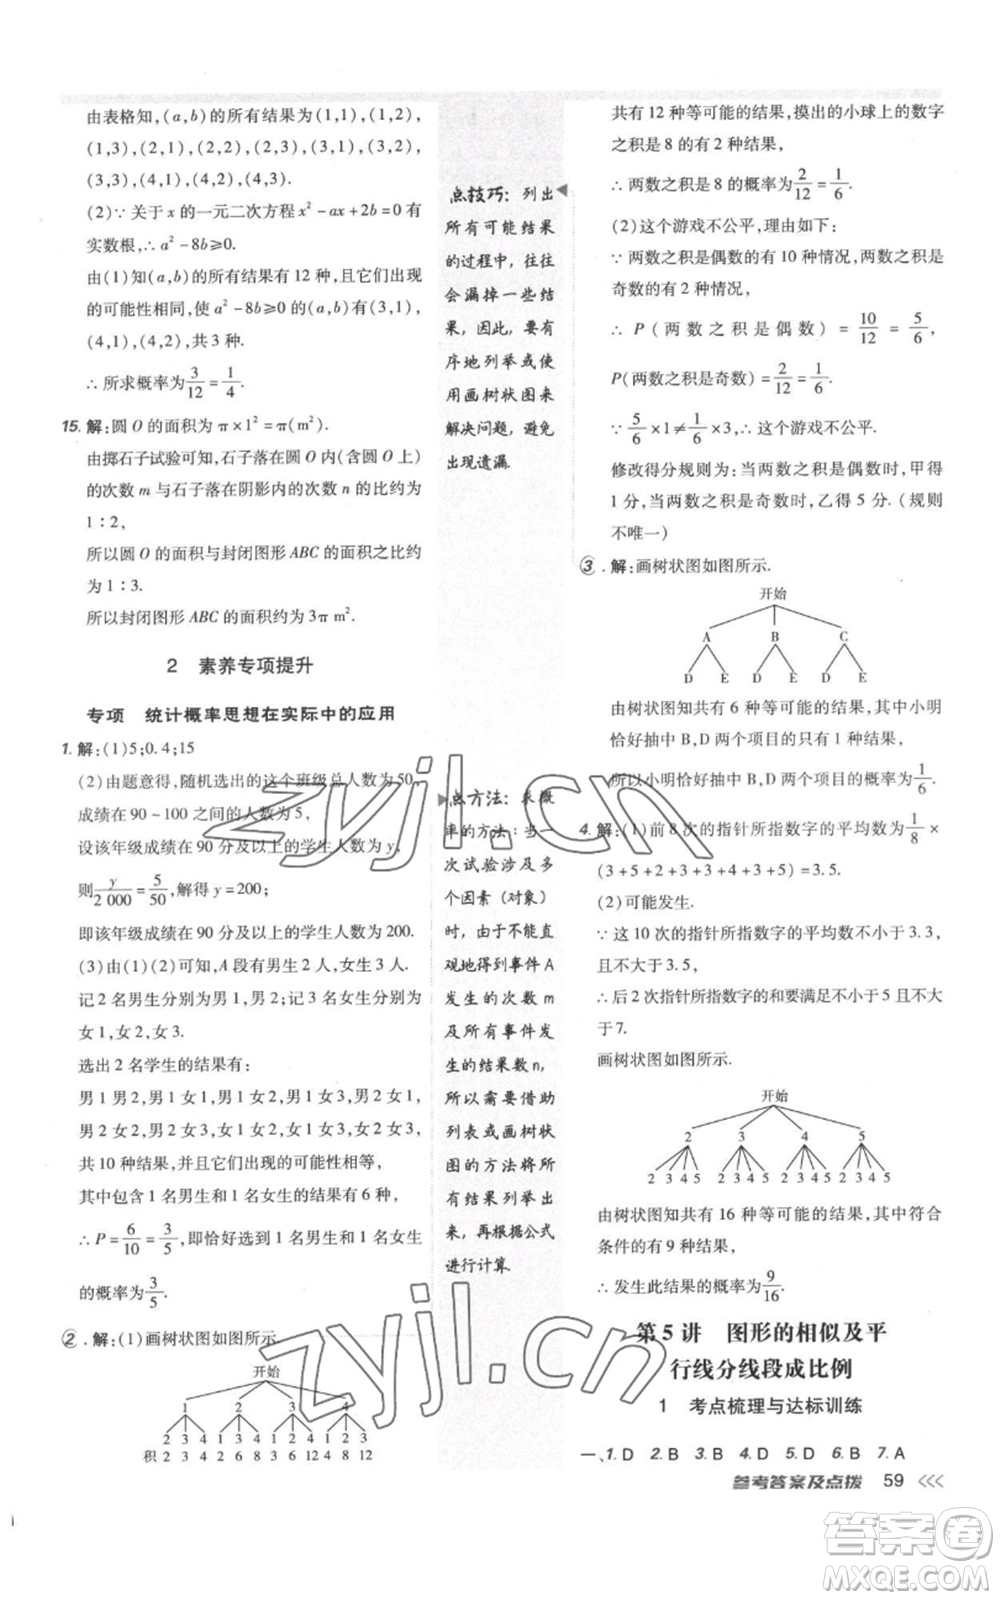 由表格知,(a,b)的所有结果为(1,1),(1,2),
(1,3),(2,1),(2,2),(2,3),(3,1),(3,2),
(3,3),(4,1),(4,2),(4,3).
(2)∵关于x的一元二次方程x²-ax+2b=0有
实数根,∴a²-8b≥0.
由(1)知(a,b)的所有结果有12种,且它们出现
的可能性相同,使a²-8b≥0的有(3,1),
(4,1),(4,2),共3种.
∴所求概率为3/12=1/4.
15.解:圆O的面积为π×1²=π(m²).
由掷石子试验可知,石子落在圆O内(含圆上)
的次数m与石子落在阴影内的次数n的比约为
1:2,
所以圆O的面积与封闭图形ABC的面积之比约
为1:3.
所以封闭图形ABC的面积约为3π m².
2 素养专项提升
专项 统计概率思想在实际中的应用
1.解:(1)5;0.4;15
(2)由题意得,随机选出的这个班级总人数为50,
成绩在90~100之间的人数为5,
设该年级成绩在90分及以上的学生人数为y,
则y/2 000=5/50,解得y=200;
即该年级成绩在90分及以上的学生人数为200.
(3)由(1)(2)可知,A段有男生2人,女生3人.
记2名男生分别为男1,男2,记3名女生分别为
女1,女2,女3.
选出2名学生的结果有:
男1男2,男1女1,男1女2,男1女3,男2女1,
男2女2,男2女3,女1女2,女1女3,女2女3,
共10种结果,且它们出现的可能性相等,
其中包含1名男生和1名女生的结果有6种,
∴P=6/10=3/5,即恰好选到1名男生和1名女生
的概率为3/5.
2.解:(1)画树状图如图所示.
开始
1 2 3 4
2 3 4 1 3 4 1 2 4 1 2 3
积 2 3 4 2 6 8 3 6 12 4 8 12
点技巧:列出
所有可能结果
的过程中,往往
会漏掉一些结
果,因此,要有
序地列举或使
用画树状图来
解决问题,避免
出现遗漏.
点方法:求概
率的方法:当一
次试验涉及多
个因素(对象)
时,由于不能直
观地得到事件A
发生的次数m
及所有事件发
生的结果数n,
所以需要借助
列表或画树状
图的方法将所
有结果列举出
来,再根据公式
进行计算.
共有12种等可能的结果,摸出的小球上的数字
之积是8的有2种结果,
∴两数之积是8的概率为2/12=1/6.
(2)这个游戏不公平,理由如下:
∵两数之积是偶数的有10种情况,两数之积是
奇数的有2种情况,
∴P(两数之积是偶数)=10/12=5/6,
P(两数之积是奇数)=2/12=1/6.
∵5/6×1≠1/6×3,∴这个游戏不公平.
修改得分规则为:当两数之积是偶数时,甲得
1分,当两数之积是奇数时,乙得5分.(规则
不唯一)
3.解:画树状图如图所示.
开始
A B C
D E D E D E
由树状图知共有6种等可能的结果,其中小明
恰好抽中B,D两个项目的只有1种结果,
所以小明恰好抽中B,D两个项目的概率为1/6.
4.解:(1)前8次的指针所指数字的平均数为1/8×
(3+5+2+3+3+4+3+5)=3.5.
(2)可能发生.
∵这10次的指针所指数字的平均数不小于3.3,
且不大于3.5,
∴后2次指针所指数字的和要满足不小于5且不大
于7.
画树状图如图所示.
开始
2 3 4 5
2 3 4 5 2 3 4 5 2 3 4 5 2 3 4 5
由树状图知共有16种等可能的结果,其中符合
条件的有9种结果,
∴发生此结果的概率为9/16.
第5讲 图形的相似及平
行线分线段成比例
1 考点梳理与达标训练
一、1.D 2.B 3.B 4.D 5.D 6.B 7.A
参考答案及点拨 59 <<<
zyjl.cn
zyjl.cn
答案卷
MXQE.COM